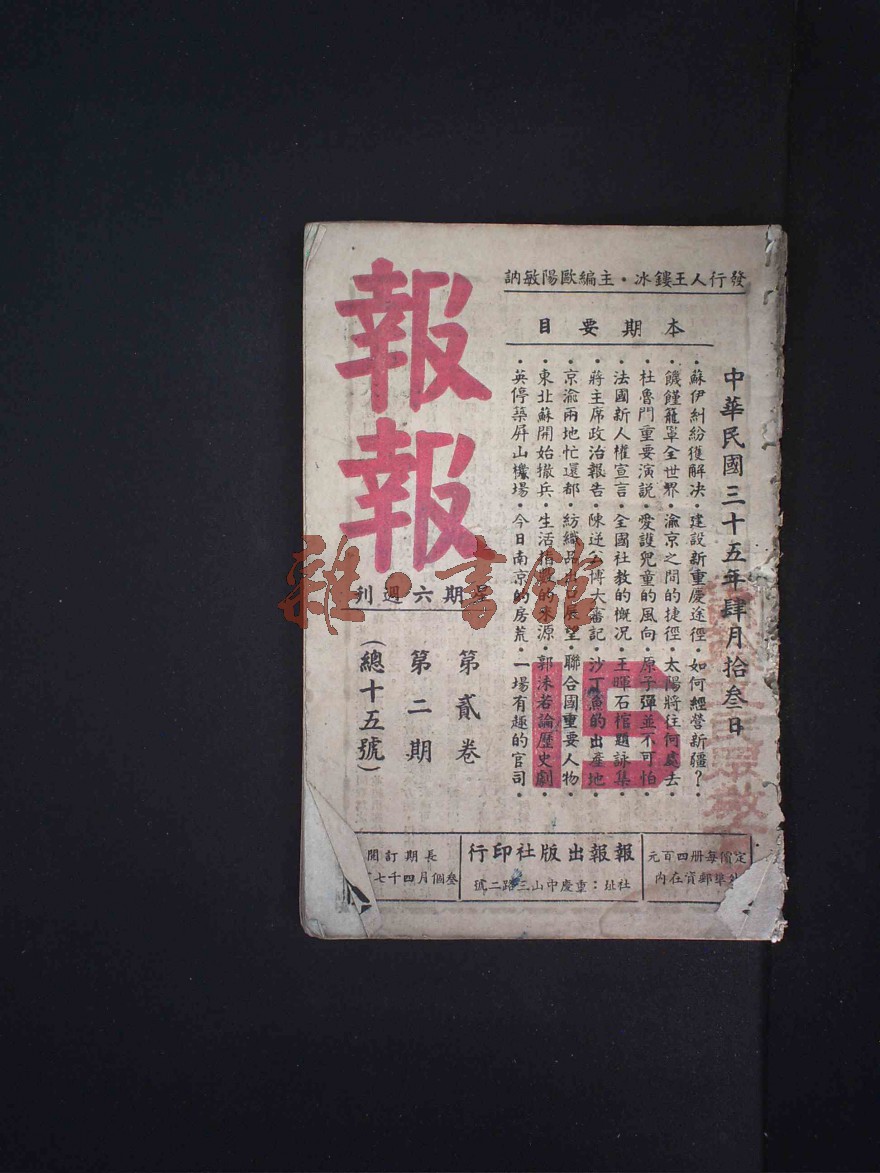 發行人王鏤冰・主編歐陽敏訥
中華民國三十五年肆月拾叁日
本期要目
・蘇伊糾紛獲解決・建設新重慶途徑・如何經營新疆？・
・饑饉籠罩全世界・渝京之間的捷徑・太陽將往何處去・
・杜魯門重要演説・愛護兒童的風向・原子彈並不可怕・
・法國新人權宣言・全國社教的慨況・王暉石棺題詠集・
・蔣主席政治報告・陳逆公博大審記・沙丁魚的出產地・
・京渝兩地忙還都・紡織品出口展望・聯合國重要人物・
・東北蘇開始撤兵・生活指數的來源・郭沫若論歷史劇・
・英停築屛山機場・今日南京的房荒・一場有趣的官司・
報報
星期六週刊
第貳卷
第二期
（總十五號）
15
雜・書館
定價每册四百元
外埠郵資在内
報報出版社印行
社址：重慶中山三路二號
長期訂閱
叁個月四千七